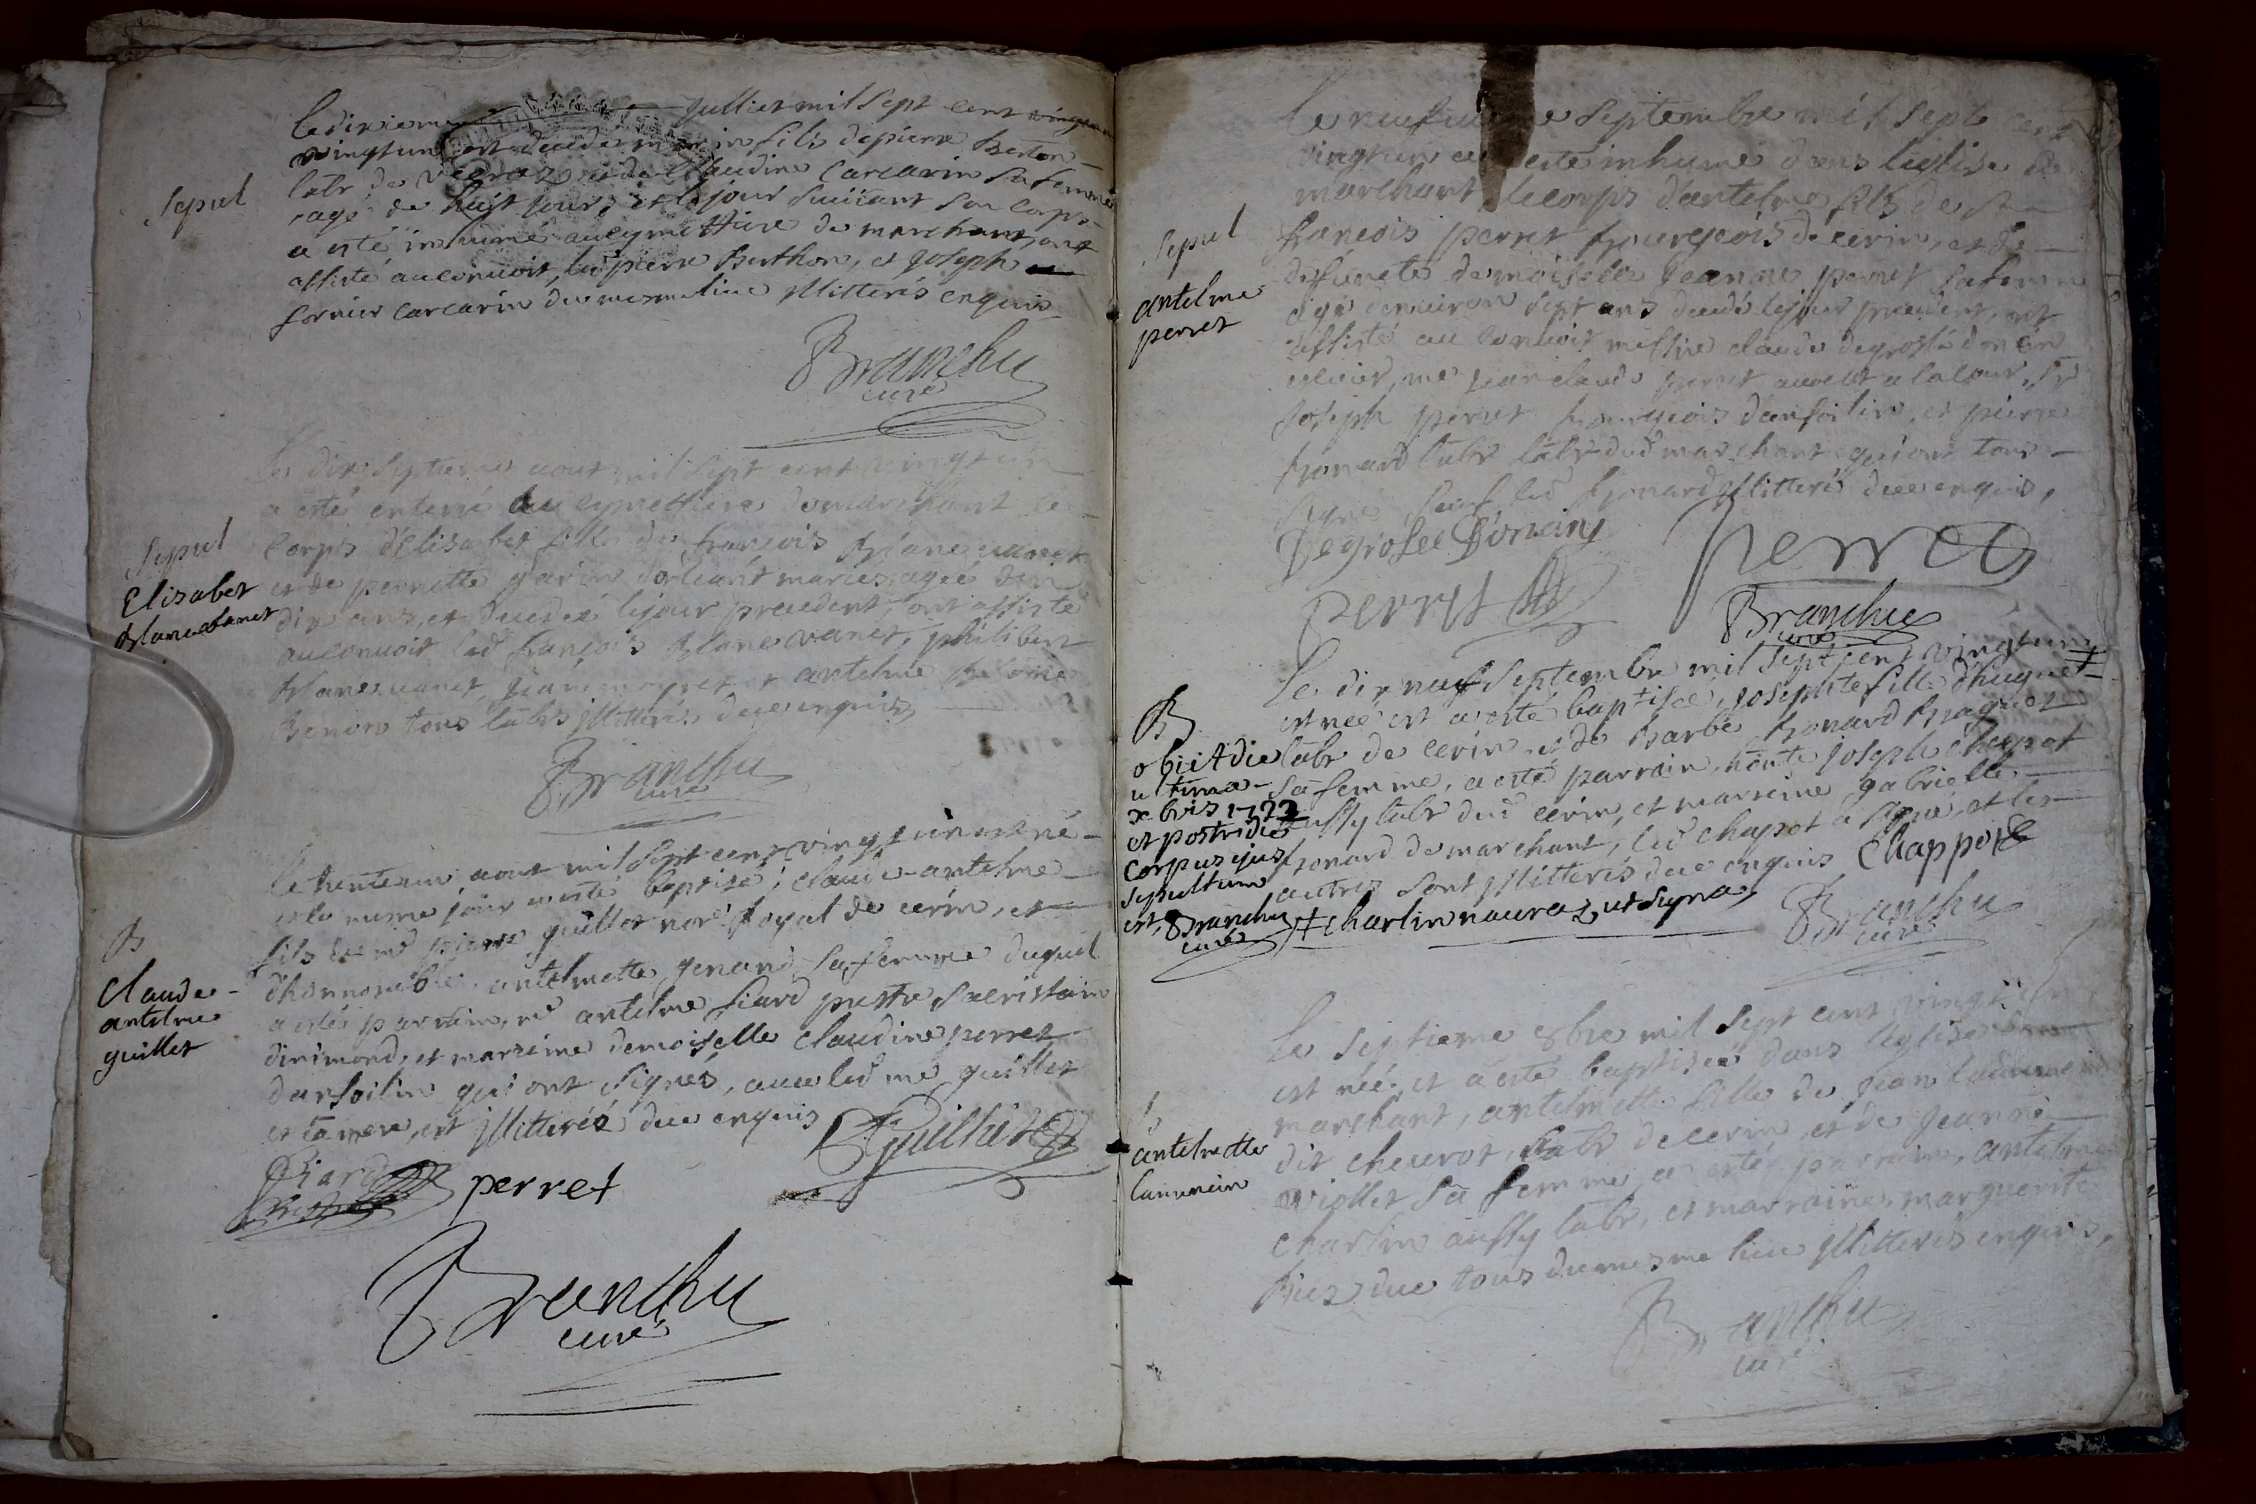 Sepul
le dixieme Julliet mil sept cent
vingtun est decedé fils de pierre Berton
labr de et de Claudine Carcarin sa femme
agé de huit jours et le jour suivant son corps
a esté inhumé au cymettire de marchant, ont
assisté au convoit, led pierre Burthon, et Joseph
fornier carcarin du mesme lieu jllitterés enquis
Branchu
curé
Sepul
Elisabet
blancvanet
Le dix septieme aout mil sept cent vingtun
a esté enterré au cymettire de marchant le
corps d'Elisabet fille de francois blancvanet
et de pernette mariés, agée d'en
dix ans, et decedée le jour precedent, ont assisté
au convoit led francois blancvanet, philibert
blancvanet, et antelme
tous labrs jllitterés de ce enquis
Branchu
curé
B
Claude
antelme
guillet
le trenteun aout mil sept cent vingtun est né
et le mesme jour a esté baptisé, claude-antelme
fils de me pierre guillet nore Royal de cerin, et
d'honnorable antelmette genand sa femme duquel
a esté parrain, me antelme siard prestre sacristain
dinimond, et marreine demoiselle claudine perret
danfoilin qui ont signés, avec led me guillet
et la mere, est jllitterée de ce enquis
Guillet
Siard
perret
Branchu
curé
Sepul
antelme
perret
Le neufvieme Septembre mil sept cent
vingtun a esté inhumé dans l'eglise de
marchant le corps d'antelme fils de sr
francois perret bourgeois de cerin, et de
deffuncte demoiselle Jeanne perret sa femme
agé d'environ sept ans decedé le jour precedent, ont
assisté au convoit messire claude degroslé doncin
me jean claude perret avocat a la cour, sr
Joseph perret bourgeois d'anfoilin, et pierre
bonard labr dud marchant qui ont tous
signé, sauf led bonard jllitteré de ce enquis,
Degroslee Doncin
Perret
perret
Branchu
curé
B
obiit die
ultima
xbris 1722
et postridie
corpus ejus
sepultum
est, Branchu
curé
Le dix neuf Septembre mil sept cent vingtun
est née et a esté baptisée, josephte fille d'hugue ‡
labr de cerin et de Barbe bonard
sa femme, a esté parrain honte joseph chapot
aussy labr dud cerin, et marreine gabrielle
bonard de marchant, led chapot a signé, et les
autres sont jllitterés de ce enquis Chappot
‡ charlin naura ut supra
Branchu
curé
B
antelmette
laurencin
Le septieme 8bre mil sept cent vingtun
est née, et a esté baptisée dans l'eglise de
marchant, antelmette fille de jean
dit chevrot, labr de cerin, et de jeanne
viollet sa femme, a esté parrain, antelme
charlin aussy labr, et marraine, marguerite
tous du mesme lieu jllitterés enquis,
Branchu
curé